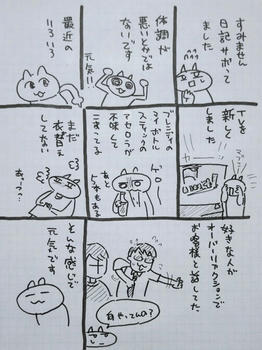 すみません
日記サボって
ました
体調が
悪いとかでは
ないです
元気!!
最近の
いろいろ
TVを
新しく
しました
マブシ
ブレンディの
マイボトル
スティックの
アセロラが
不味くて
こまってる
ゲロー
あと
5本もある
まだ
衣替え
してない
あつっ…
好きな人が
オーバーリアクションで
お客様と話してた
何やってんの?
とんな感じで
元気です